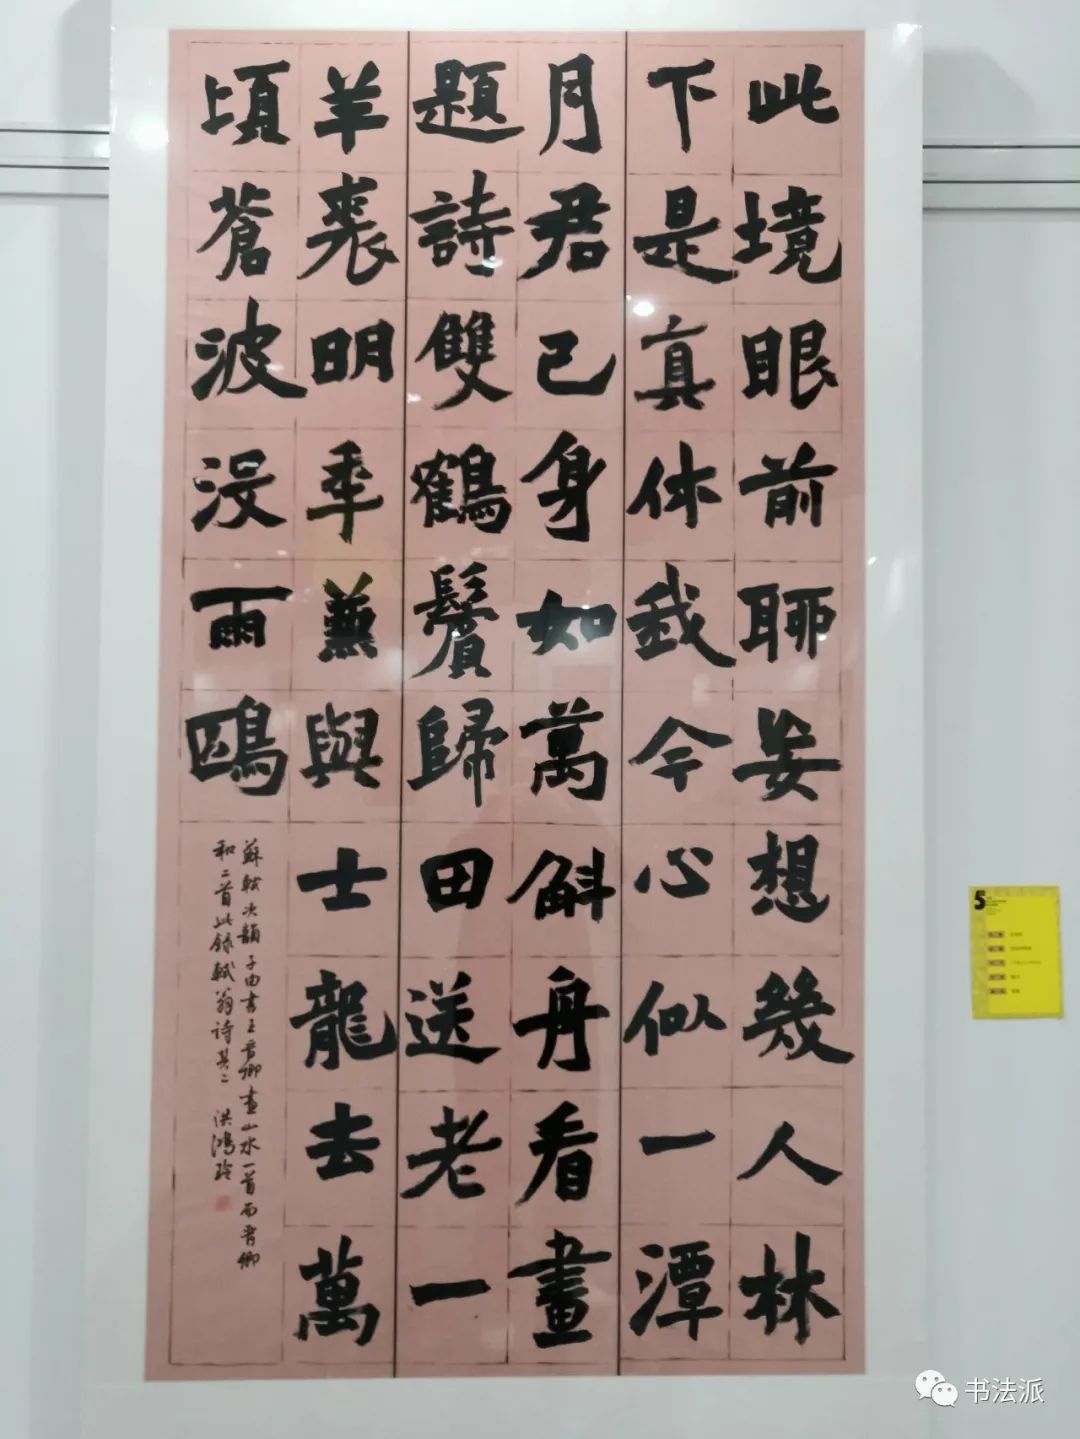 此境眼前聊妄想幾人林
下是真休我今心似一潭
月君已身如萬斛舟看畫
題詩雙鶴鬢歸田送老一
羊裘明年兼與士龍去萬
頃蒼波没兩鷗
蘇軾次韻子由書王晋卿畫山水一首而晋卿
和二首此録軾翁詩其二 洪鴻玲
5
书法派